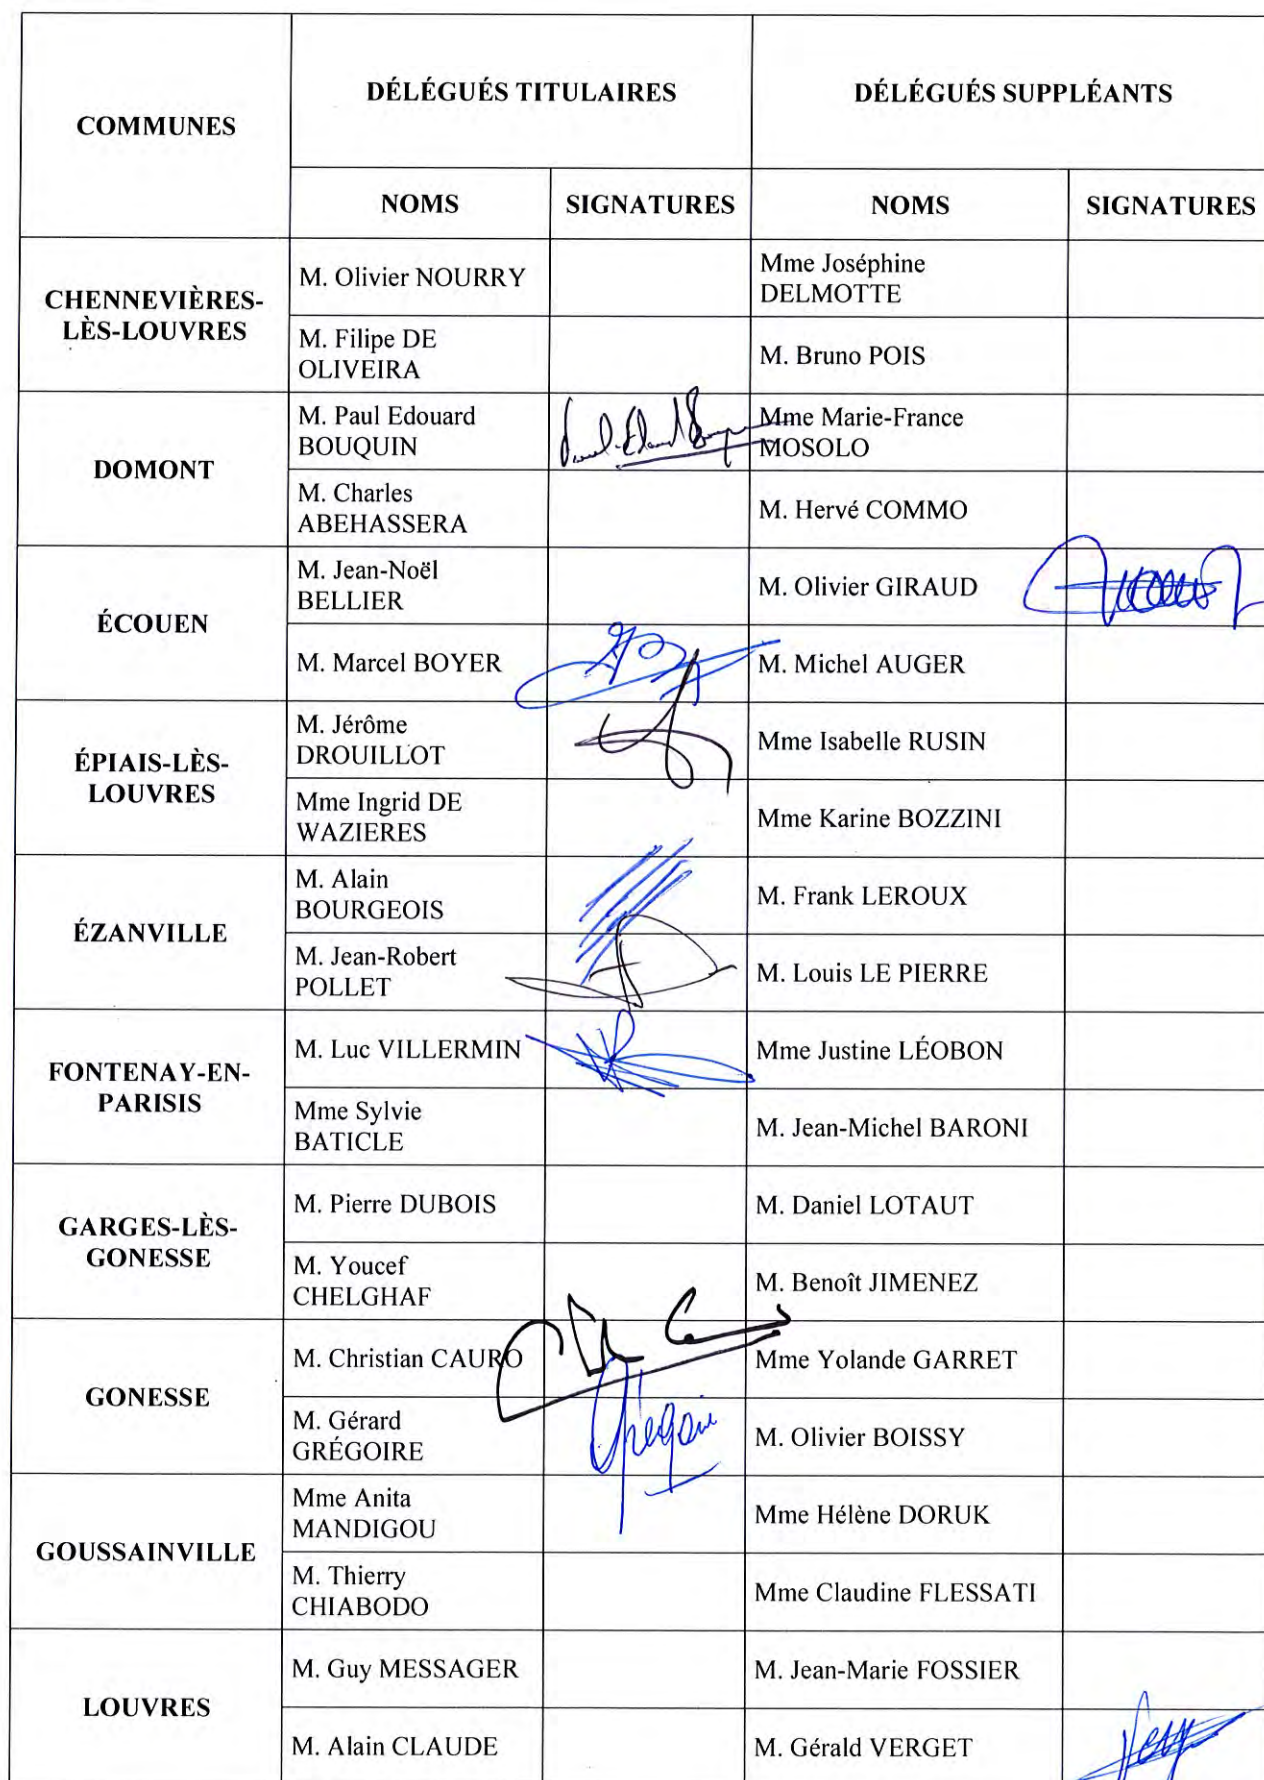 COMMUNES
DÉLÉGUÉS TITULAIRES
DÉLÉGUÉS SUPPLÉANTS
NOMS
SIGNATURES
NOMS
SIGNATURES
CHENNEVIÈRES-
LÈS-LOUVRES
M. Olivier NOURRY
Mme Joséphine
DELMOTTE
M. Filipe DE
OLIVEIRA
M. Bruno POIS
DOMONT
M. Paul Edouard
BOUQUIN
Mme Marie-France
MOSOLO
M. Charles
ABEHASSERA
M. Hervé COMMO
ÉCOUEN
M. Jean-Noël
BELLIER
M. Olivier GIRAUD
M. Marcel BOYER
M. Michel AUGER
ÉPIAIS-LÈS-
LOUVRES
M. Jérôme
DROUILLOT
Mme Isabelle RUSIN
Mme Ingrid DE
WAZIERES
Mme Karine BOZZINI
ÉZANVILLE
M. Alain
BOURGEOIS
M. Frank LEROUX
M. Jean-Robert
POLLET
M. Louis LE PIERRE
FONTENAY-EN-
PARISIS
M. Luc VILLERMIN
Mme Justine LÉOBON
Mme Sylvie
BATICLE
M. Jean-Michel BARONI
GARGES-LÈS-
GONESSE
M. Pierre DUBOIS
M. Daniel LOTAUT
M. Youcef
CHELGHAF
M. Benoît JIMENEZ
GONESSE
M. Christian CAURO
Mme Yolande GARRET
M. Gérard
GRÉGOIRE
M. Olivier BOISSY
GOUSSAINVILLE
Mme Anita
MANDIGOU
Mme Hélène DORUK
M. Thierry
CHIABODO
Mme Claudine FLESSATI
LOUVRES
M. Guy MESSAGER
M. Jean-Marie FOSSIER
M. Alain CLAUDE
M. Gérald VERGET